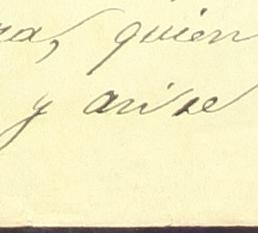 ra, quien
y avise